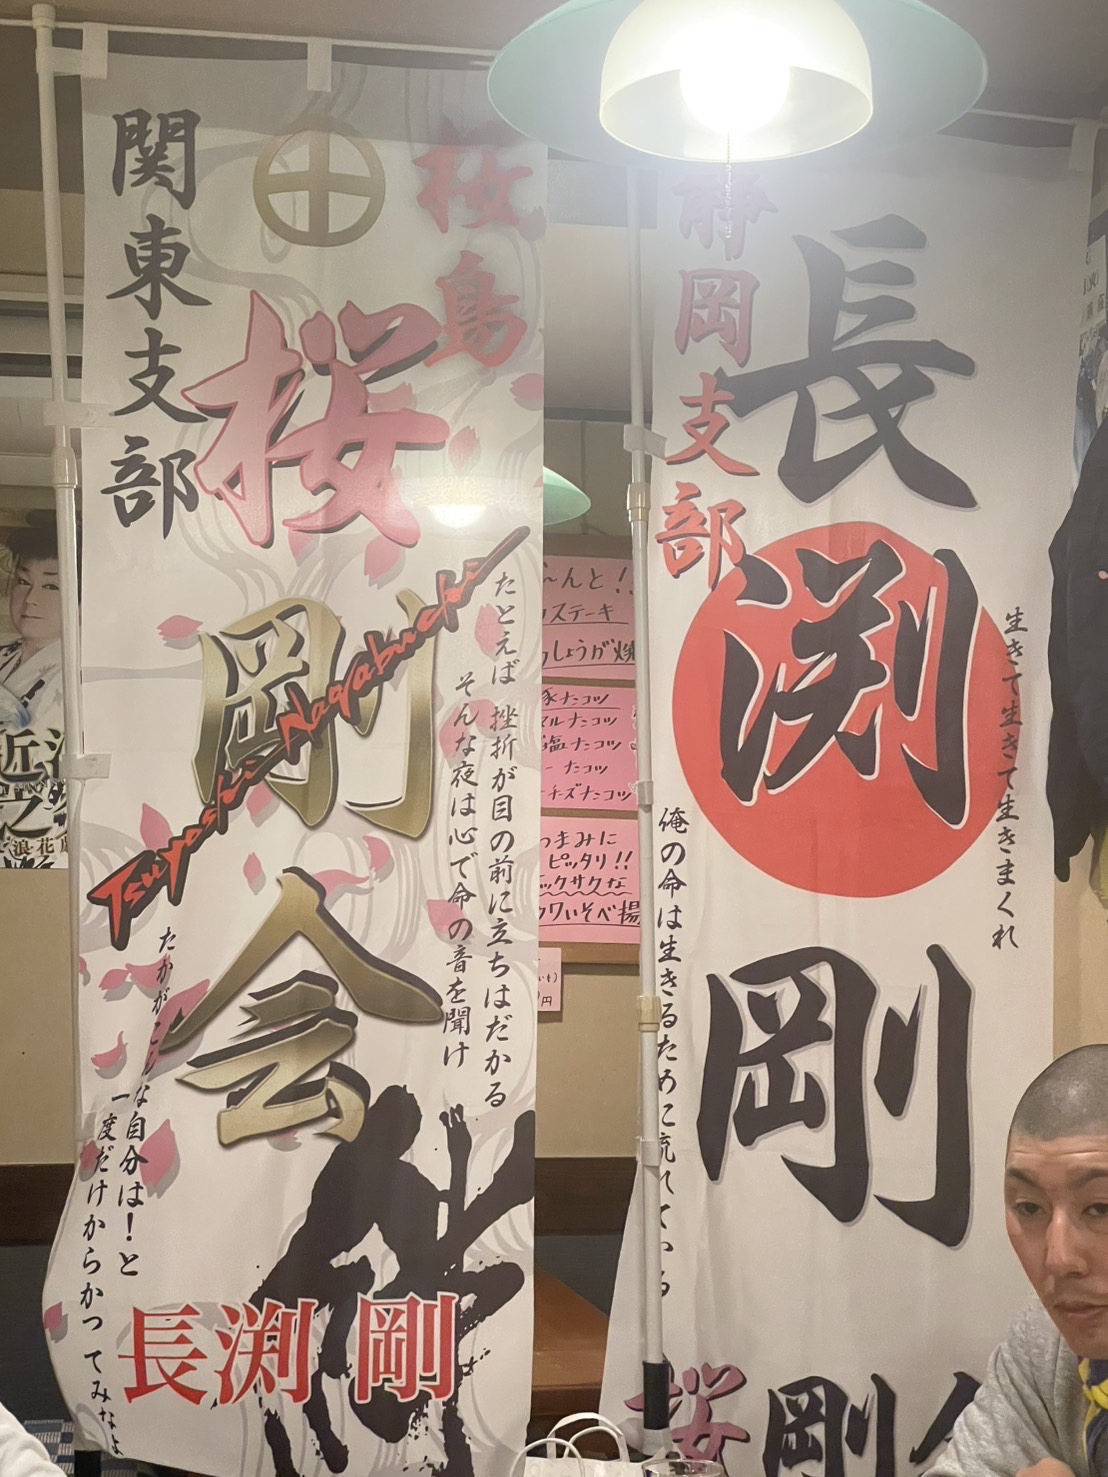 関東支部
桜島
桜
剛会
Tsuyoshi Nagabuchi
たとえば 挫折が目の前に立ちはだかる
そんな夜は心で命の音を聞け
たかがこんな自分は！と
一度だけからかってみなよ
長渕 剛
静岡支部
長渕剛
生きて生きて生きまくれ
俺の命は生きるために流れている
桜
剛
ステーキ
しょうが焼
豚ナコツ
塩ナコツ
ーナコツ
ーズナコツ
つまみに
ピッタリ!!
ックサクな
いそべ揚
円
浪花